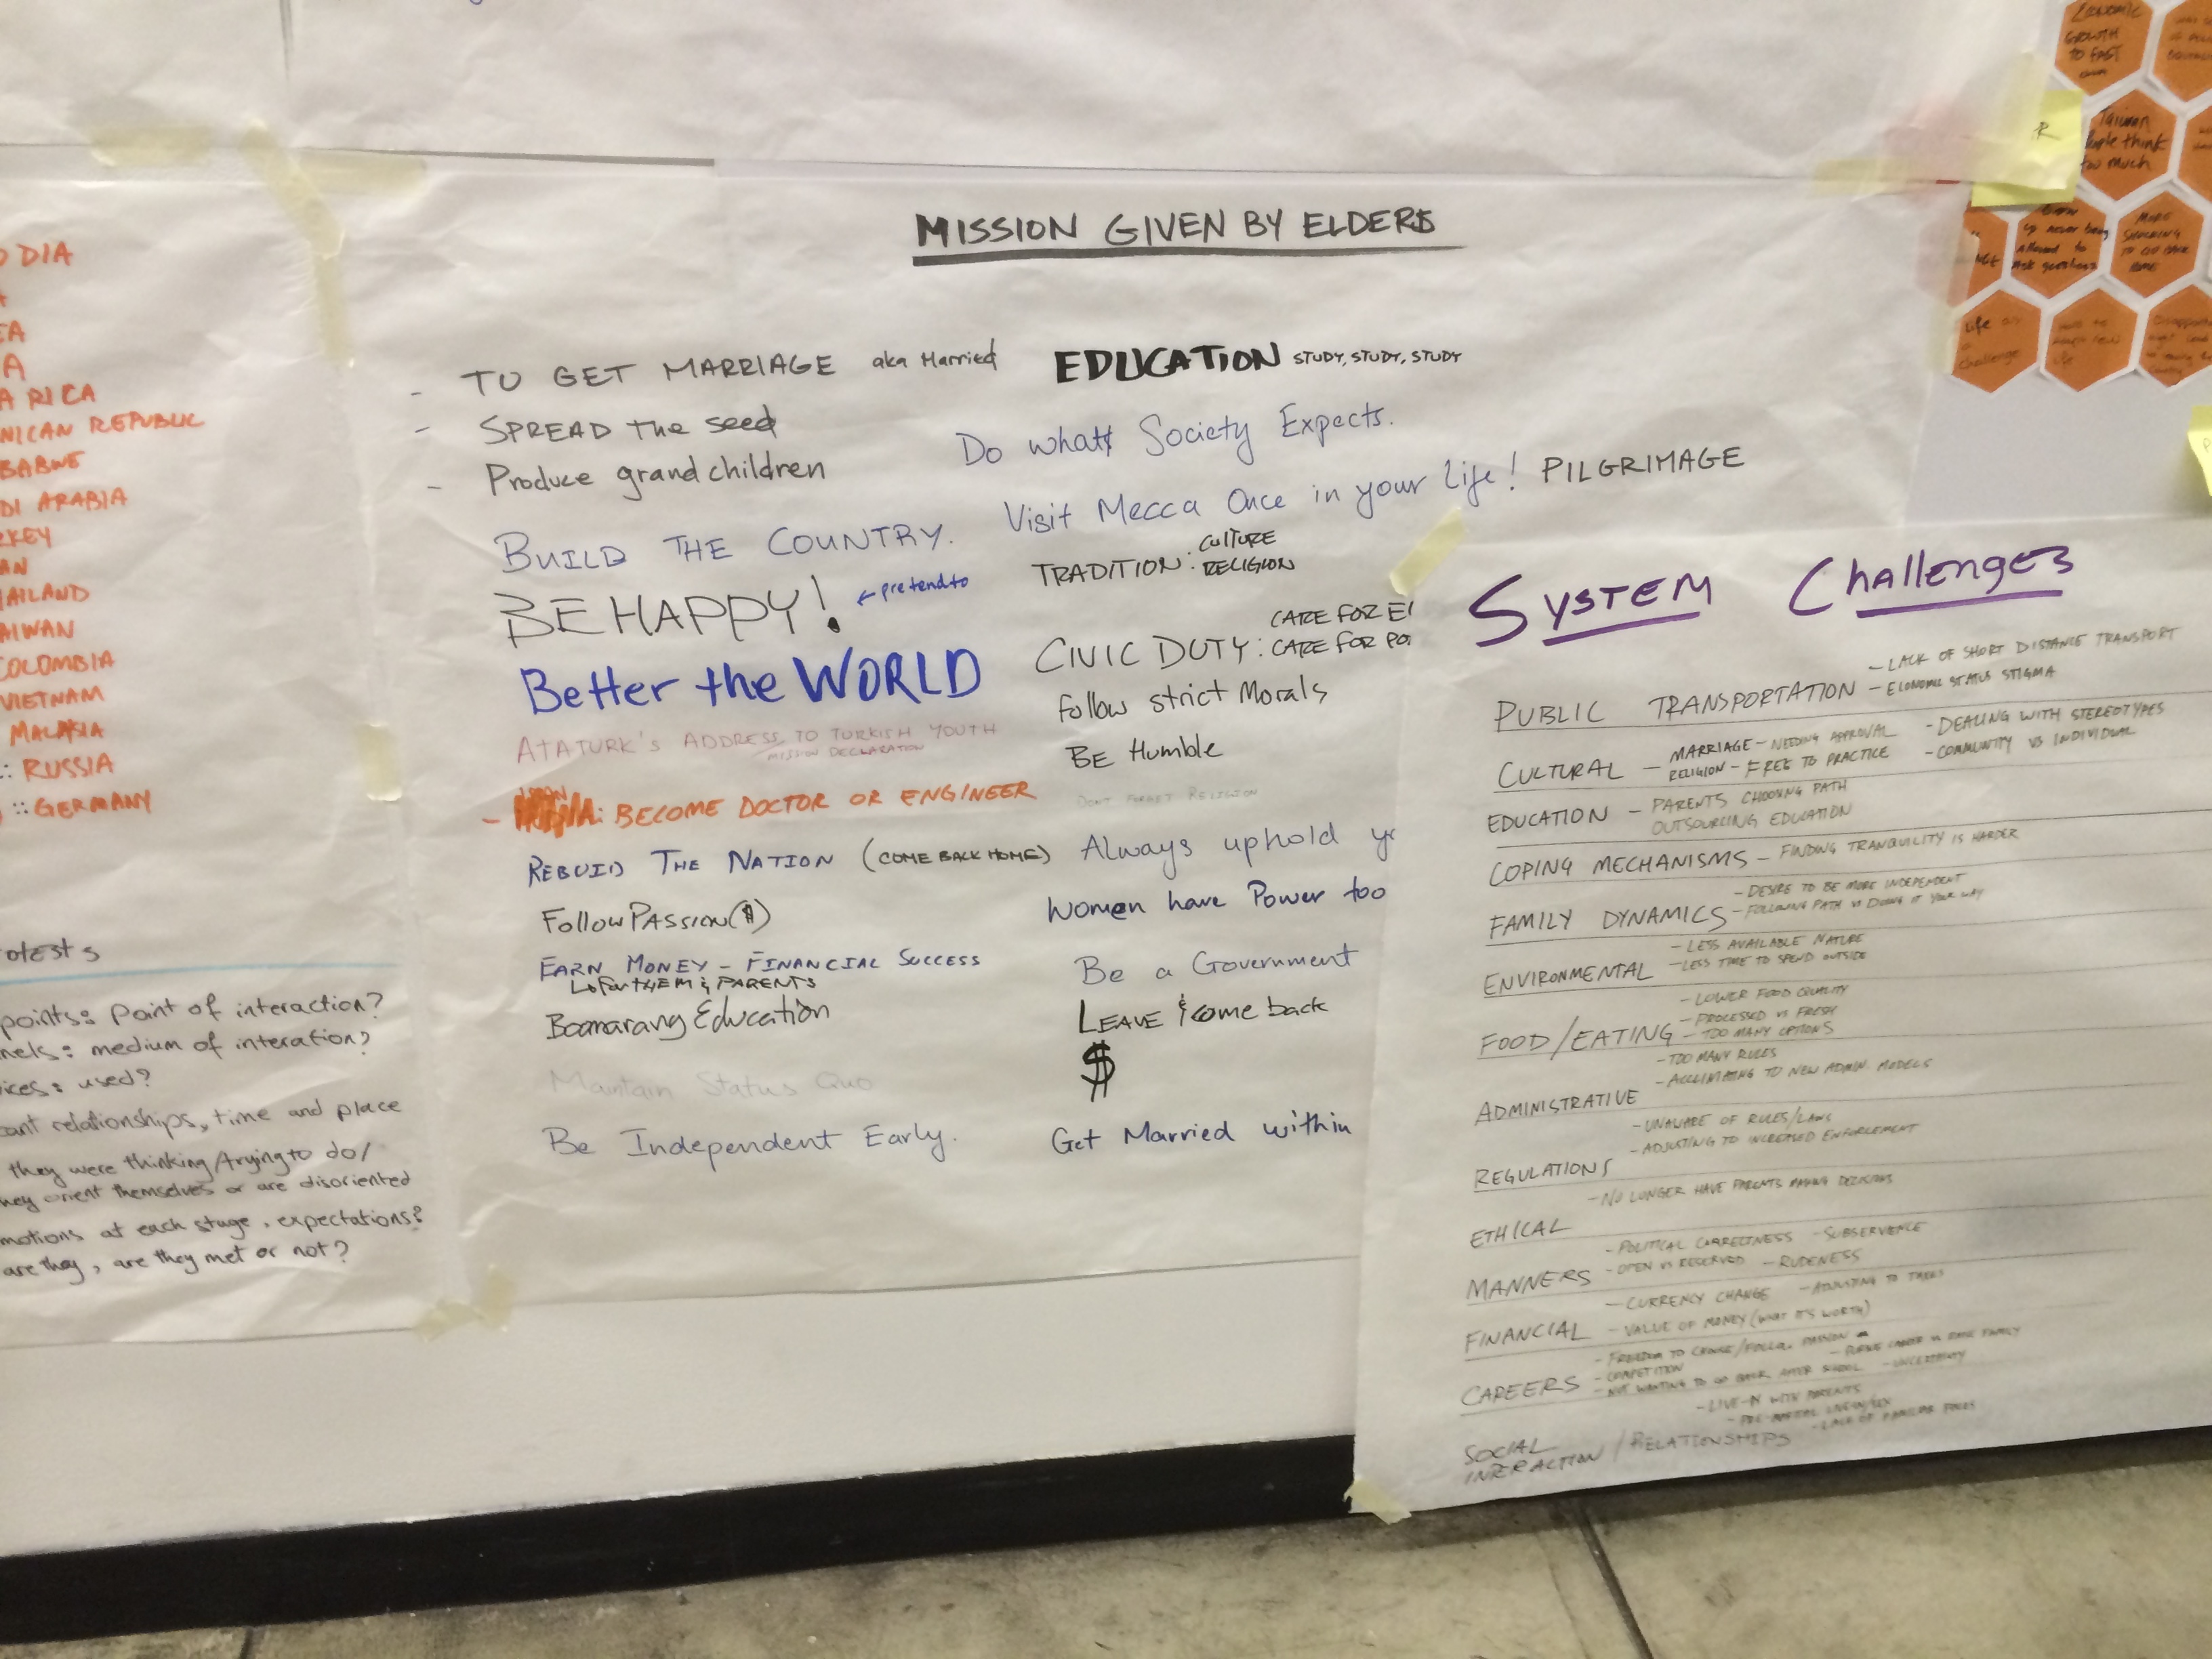 DIA
EA
A
A RICA
NICAN REPUBLIC
BABWE
DI ARABIA
RKEY
AN
AILAND
AIWAN
COLOMBIA
VIETNAM
MALASIA
:: RUSSIA
:: GERMANY
otests
points: point of interaction?
nels: medium of interation?
ices: used?
cant relationships, time and place
they were thinking/trying to do/
hey orient themselves or are disoriented
motions at each stage, expectations?
are they, are they met or not?
MISSION GIVEN BY ELDERS
- TO GET MARRIAGE aka Married
- SPREAD the seed
- Produce grandchildren
BUILD THE COUNTRY.
BE HAPPY! ← pretend to
Better the WORLD
ATATURK'S ADDRESS TO TURKISH YOUTH
MISSION DECLARATION
- BECOME DOCTOR OR ENGINEER
REBUID THE NATION (COME BACK HOME)
Follow PASSION($)
EARN MONEY - FINANCIAL SUCCESS
for THEM & PARENTS
Boomarang Education
Maintain Status Quo
Be Independent Early.
EDUCATION STUDY, STUDY, STUDY
Do what Society Expects.
Visit Mecca Once in your life! PILGRIMAGE
TRADITION: CULTURE
RELIGION
CARE FOR El
CIVIC DUTY: CARE FOR PO
follow strict Morals
BE Humble
DON'T FORGET RELIGION
Always uphold y
Women have Power too
Be a Government
LEAVE & come back
$
Get Married within
SYSTEM Challenges
PUBLIC TRANSPORTATION
- LACK OF SHORT DISTANCE TRANSPORT
- ECONOMIC STATUS STIGMA
CULTURAL
- MARRIAGE - NEEDING APPROVAL
RELIGION - FREE TO PRACTICE
- DEALING WITH STEREOTYPES
- COMMUNITY VS INDIVIDUAL
EDUCATION
- PARENTS CHOOSING PATH
OUTSOURCING EDUCATION
COPING MECHANISMS - FINDING TRANQUILITY IS HARDER
FAMILY DYNAMICS
- DESIRE TO BE MORE INDEPENDENT
- FOLLOWING PATH VS DOING IT YOUR WAY
ENVIRONMENTAL
- LESS AVAILABLE NATURE
- LESS TIME TO SPEND OUTSIDE
FOOD/EATING
- LOWER FOOD QUALITY
- PROCESSED VS FRESH
- TOO MANY OPTIONS
ADMINISTRATIVE
- TOO MANY RULES
- ACCLIMATING TO NEW ADMIN. MODELS
REGULATIONS
- UNAWARE OF RULES/LAWS
- ADJUSTING TO INCREASED ENFORCEMENT
ETHICAL
- NO LONGER HAVE PARENTS MAKING DECISIONS
MANNERS
- POLITICAL CORRECTNESS - SUBSERVIENCE
- OPEN VS RESERVED - RUDENESS
FINANCIAL
- CURRENCY CHANGE - ADJUSTING TO
- VALUE OF MONEY (WHAT IT'S WORTH)
CAREERS
- FREEDOM TO CHANGE/FOLLOW PASSION
- COMPETITION
- NOT WANTING TO GO BACK AFTER SCHOOL - UNCERTAINTY
SOCIAL
INTERACTION / RELATIONSHIPS
- LIVE-IN WITH PARENTS
- LACK OF FAMILIAR FACES
ECONOMIC
GROWTH
TO FAST
Taiwan
People think
too much
up never being
Allowed to
Ask questions
MORE
SHOCKING
TO GO BACK
HOME
life as
a
challenge